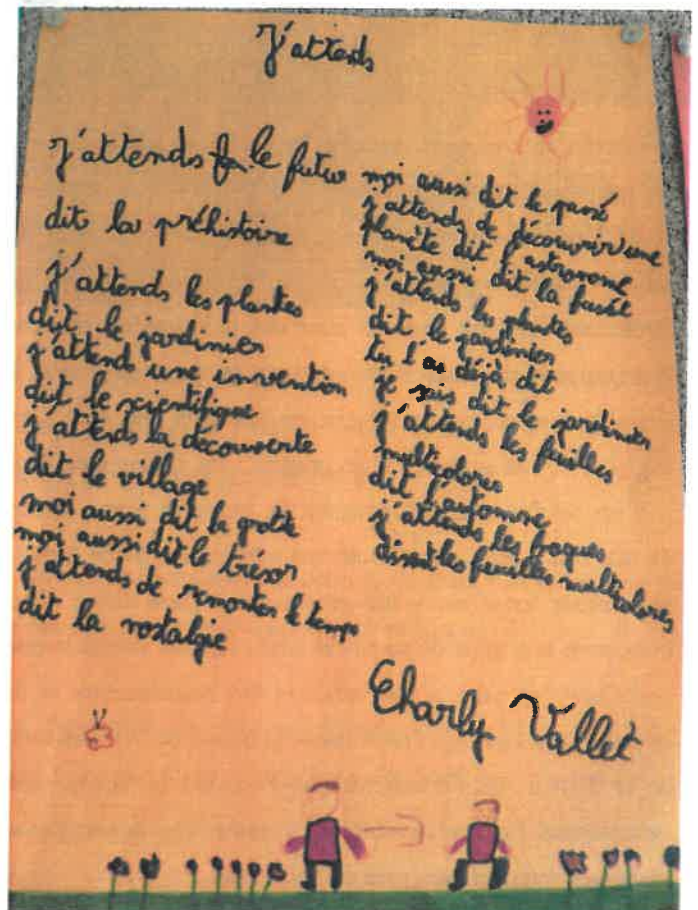 J'attends
j'attends le futur
dit la préhistoire
j'attends les plantes
dit le jardinier
j'attends une invention
dit le scientifique
j'attends la découverte
dit le village
moi aussi dit la grotte
moi aussi dit le trésor
j'attends de remonter le temps
dit la nostalgie
moi aussi dit le passé
j'attends de découvrir une
planète dit l'astronome
moi aussi dit la fusée
j'attends les plantes
dit le jardinier
tu l'as déjà dit
je sais dit le jardinier
j'attends les feuilles
multicolores
dit l'automne
j'attends les
disent les feuilles multicolores
Charly Vallet